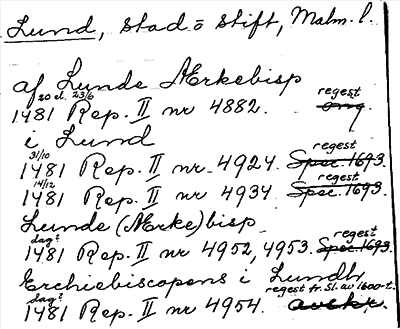 Lund, stad o stift, Malm. l.
af Lunde Ærkebisp
20 el. 23/6 regest
1481 Rep. II nr 4882. orig.
i Lund
31/10 regest
1481 Rep. II nr 4924. Spec. 1693.
14/12 regest
1481 Rep. II nr 4934 Spec. 1693.
Lunde (Ærke)bisp
dag? regest
1481 Rep. II nr 4952, 4953. Spec. 1693.
Erchiebiscopens i Lundh
dag? regest fr. Sl. av 1600-t.
1481 Rep. II nr 4954. avskr.